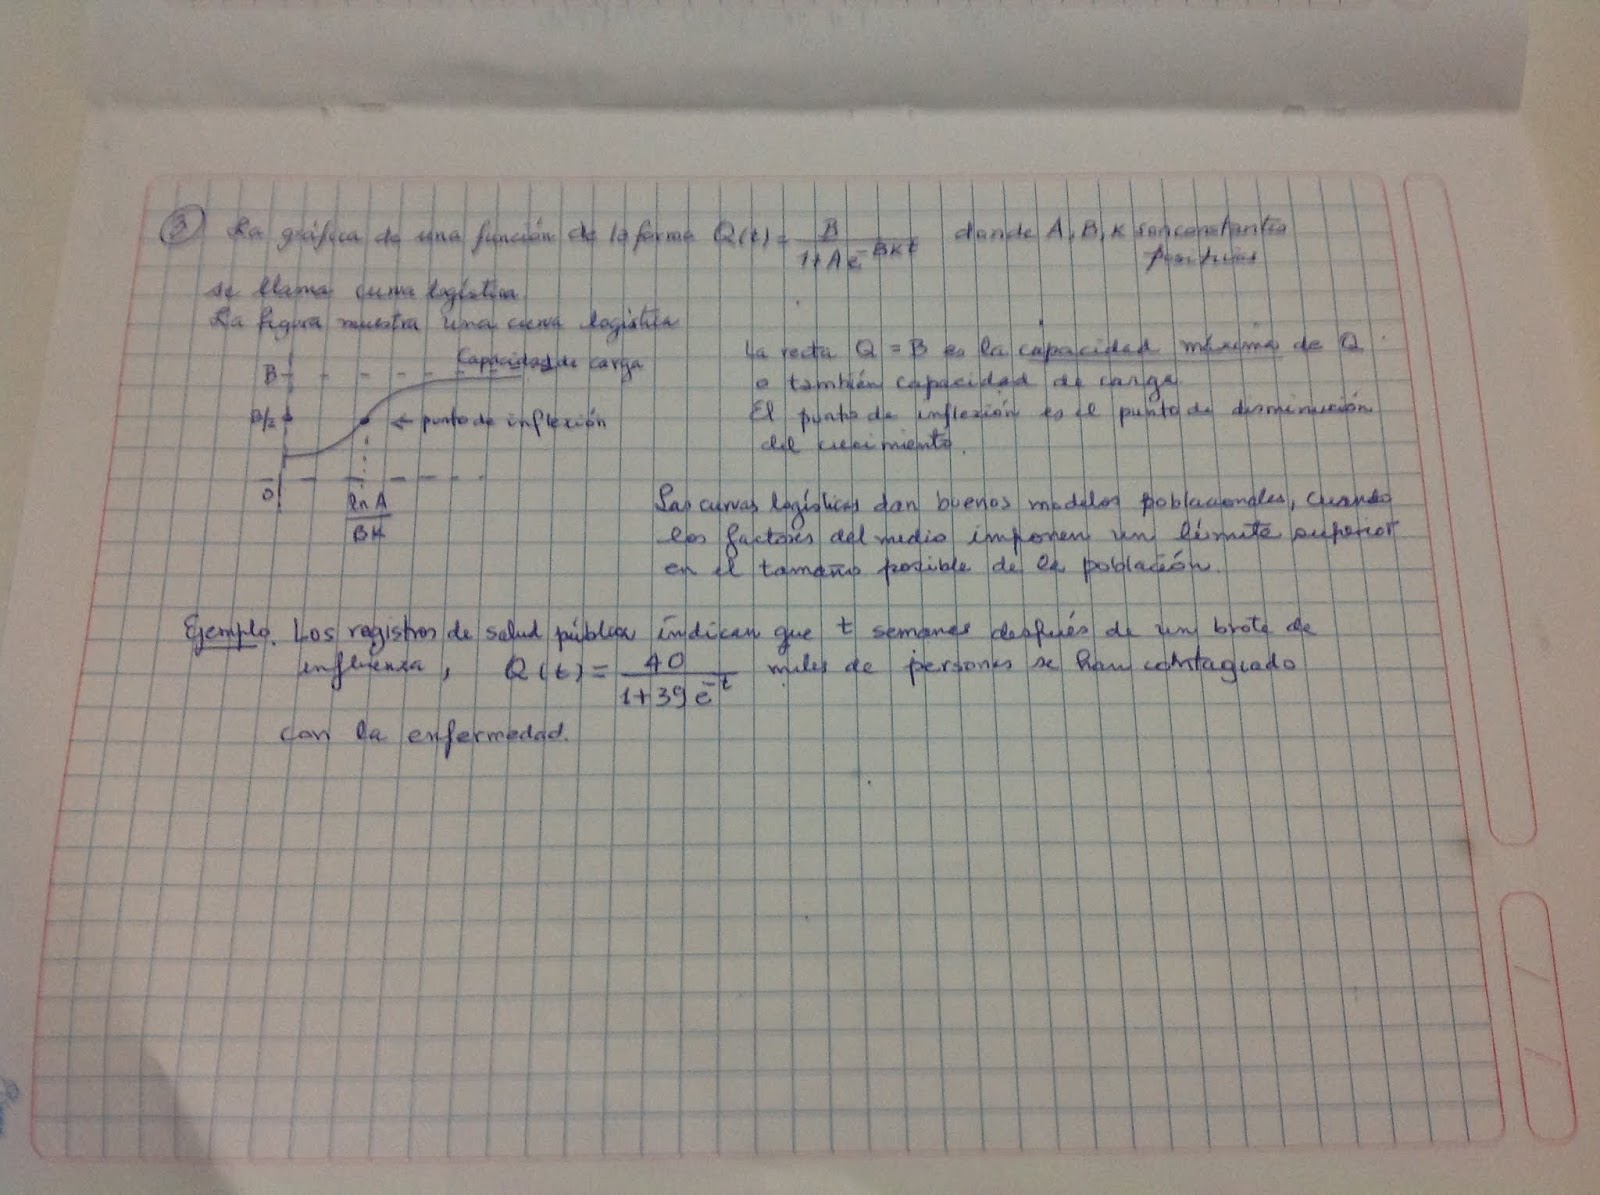 ③ La gráfica de una función de la forma Q(t) = B / (1+Ae^-BKt) donde A, B, K son constantes positivas
se llama curva logística.
La figura muestra una curva logística
B
Capacidad de carga
B/2
← punto de inflexión
0
ln A / BK
La recta Q = B es la capacidad máxima de Q
o también capacidad de carga.
El punto de inflexión es el punto de disminución
del crecimiento.
Las curvas logísticas dan buenos modelos poblacionales, cuando
los factores del medio imponen un límite superior
en el tamaño posible de la población.
Ejemplo. Los registros de salud pública indican que t semanas después de un brote de
influenza, Q(t) = 40 / (1+39e^-t) miles de personas se han contagiado
con la enfermedad.